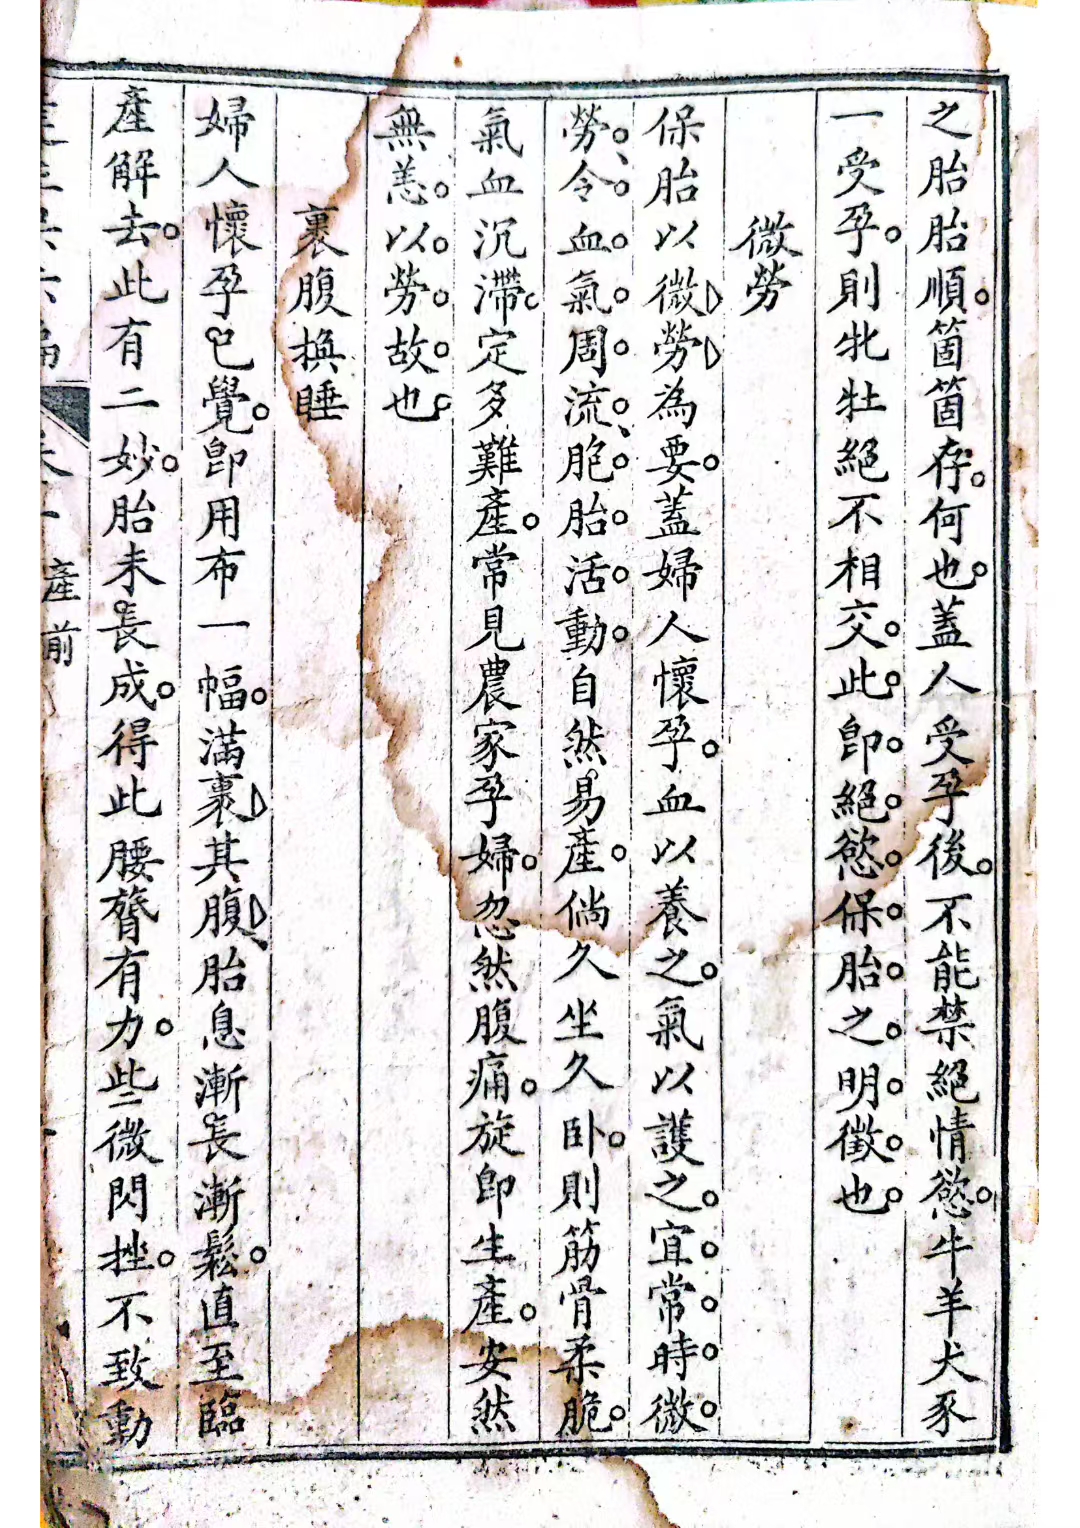 之胎胎順。箇箇存。何也。蓋人受孕後。不能禁絕情慾。牛羊犬豕
一受孕。則牝牡絕不相交。此。卽。絕。慾。保。胎。之。明。徵。也。
微勞
保胎以微勞為要。蓋婦人懷孕。血以養之。氣以護之。宜。常。時。微。
勞。、令。血。氣。周。流。、胞。胎。活。動。自然易產。倘久坐久卧。則筋骨柔脆。
氣血沉滯。定多難產。常見農家孕婦。忽然腹痛。旋卽生產。安然
無恙。以。勞。故。也。
裹腹換睡
婦人懷孕已覺。卽用布一幅。滿裹其腹、胎息漸長漸鬆。直至臨
產解去。此有二妙。胎未長成。得此腰膂有力。些微閃挫。不致動
產前